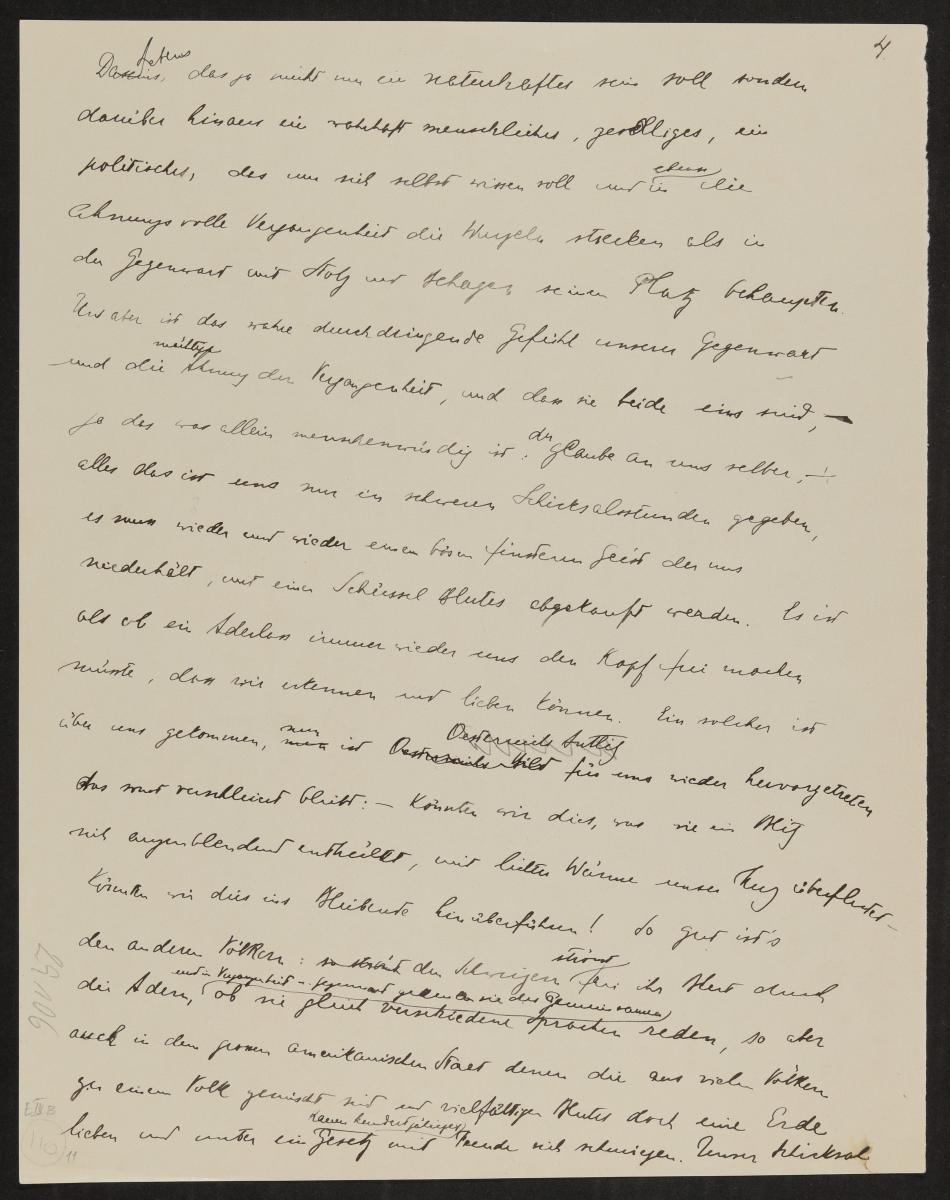 4.
Lebens
Daseins, das ja nicht nur ein statenhaftes sein soll sondern
darüber hinaus ein wahrhaft menschliches, geselliges, ein
politisches, das um sich selbst wissen soll und ebenso in die
ahnungsvolle Vergangenheit die Wurzeln strecken als in
der Gegenwart mit Stolz und Behagen seinen Platz behaupten.
Uns aber ist das wahre durchdringende Gefühl unserer Gegenwart
und die mächtige Ahnung der Vergangenheit, und dass sie beide eins sind, —
ja das was allein menschenwürdig ist: der Glaube an uns selber, —
alles das ist uns nur in schweren Schicksalsstunden gegeben,
es muss wieder und wieder einem bösen finsteren Geist der uns
niederhält, mit einer Schüssel Blutes abgekauft werden. Es ist
als ob ein Aderlass immer wieder uns den Kopf frei machen
müsste, dass wir erkennen und lieben können. Ein solcher ist
über uns gekommen, nun ist Oesterreichs Antlitz
Oesterreichs Bild für uns wieder hervorgetreten
das sonst verschleiert bleibt: — Könnten wir dies, was wie ein Blitz
sich augenblendend enthüllt, mit lichter Wärme unser Herz überflutet —
Könnten wir dies ins Bleibende hinüberführen! So gut ist's
den anderen Völkern: so strömt den Schweizern strömt frei ihr Blut durch
und in Vergangenheit u. Gegenwart gehen sie das Gemeinsame
die Adern, ob sie gleich verschiedene Sprachen reden, so aber
auch in dem grossen amerikanischen Staat denen die aus vielen Völkern
zu einem Volk gemischt sind und vielfältigen Blutes doch eine Erde
lieben und unter ein kaum hundertjähriges Gesetz mit Freude sich schmiegen. Unser Schicksal
E IV B
110
11